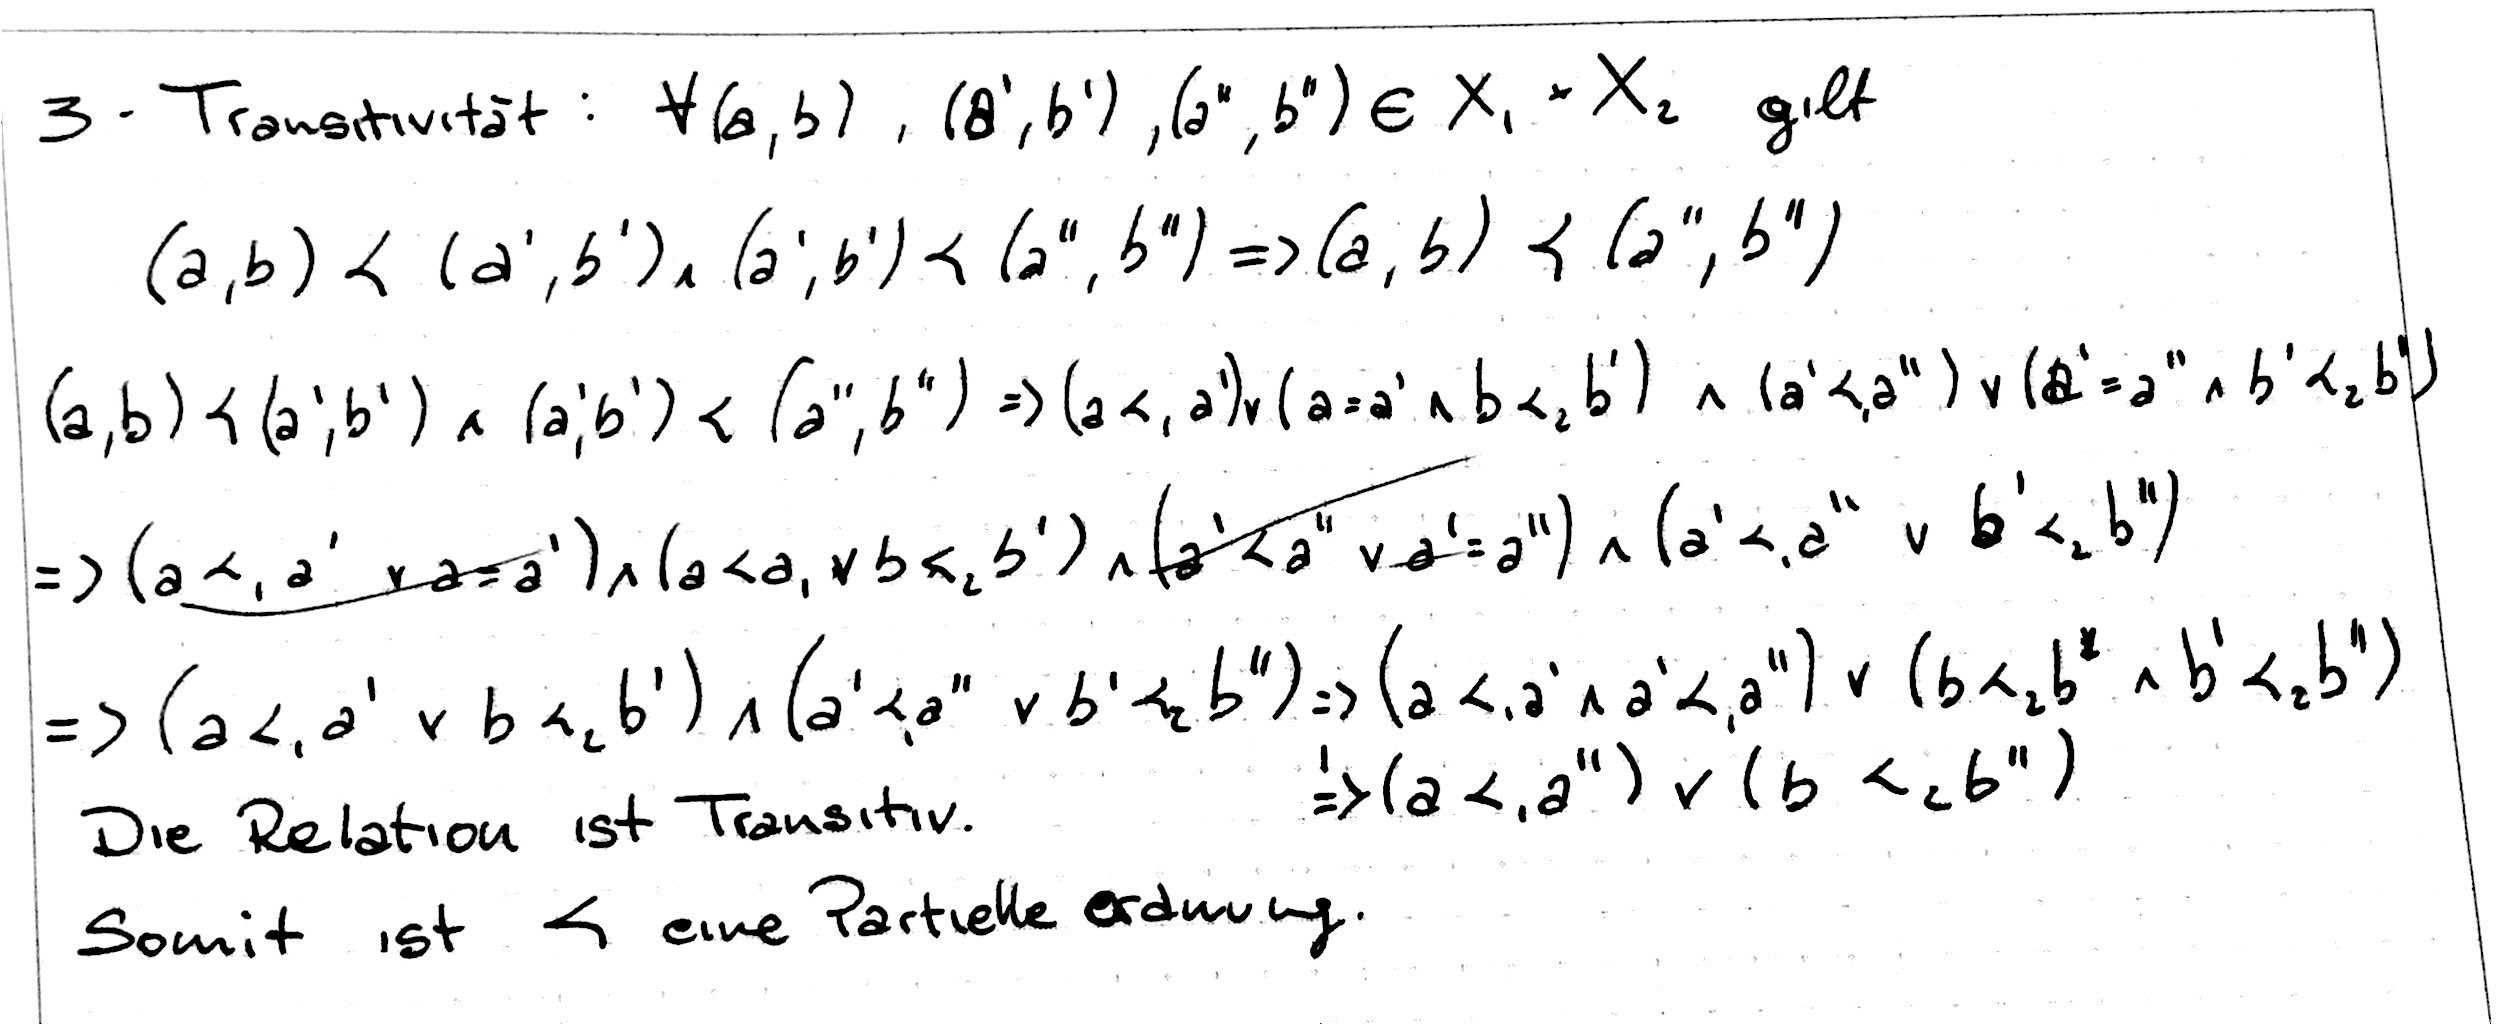 3 - Transitivität : ∀(a,b) , (a',b') ,(a'',b'') ∈ X₁ × X₂ gilt
(a,b) ≺ (a',b') ∧ (a',b') ≺ (a'',b'') => (a,b) ≺ (a'',b'')
(a,b) ≺ (a',b') ∧ (a',b') ≺ (a'',b'') => (a ≺₁ a') ∨ (a=a' ∧ b ≺₂ b') ∧ (a' ≺₁ a'') ∨ (a'=a'' ∧ b' ≺₂ b'')
=> (a ≺₁ a' ∨ a=a') ∧ (a ≺ a₁ ∨ b ≺₂ b') ∧ (a' ≺ a'' ∨ a'=a'') ∧ (a' ≺₁ a'' ∨ b' ≺₂ b'')
=> (a ≺₁ a' ∨ b ≺₂ b') ∧ (a' ≺₁ a'' ∨ b' ≺₂ b'') => (a ≺₁ a' ∧ a' ≺₁ a'') ∨ (b ≺₂ b' ∧ b' ≺₂ b'')
=> (a ≺₁ a'') ∨ (b ≺₂ b'')
Die Relation ist Transitiv.
Somit ist ≺ eine Partielle ordnung.